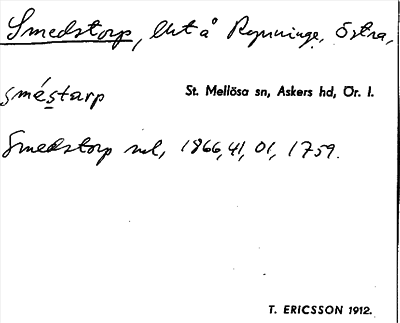 Smedstorp, lht å Rynninge, Östra,
sméstarp
St. Mellösa sn, Askers hd, Ör. l.
Smedstorp ml, 1866, 41, 01, 1759.
T. ERICSSON 1912.